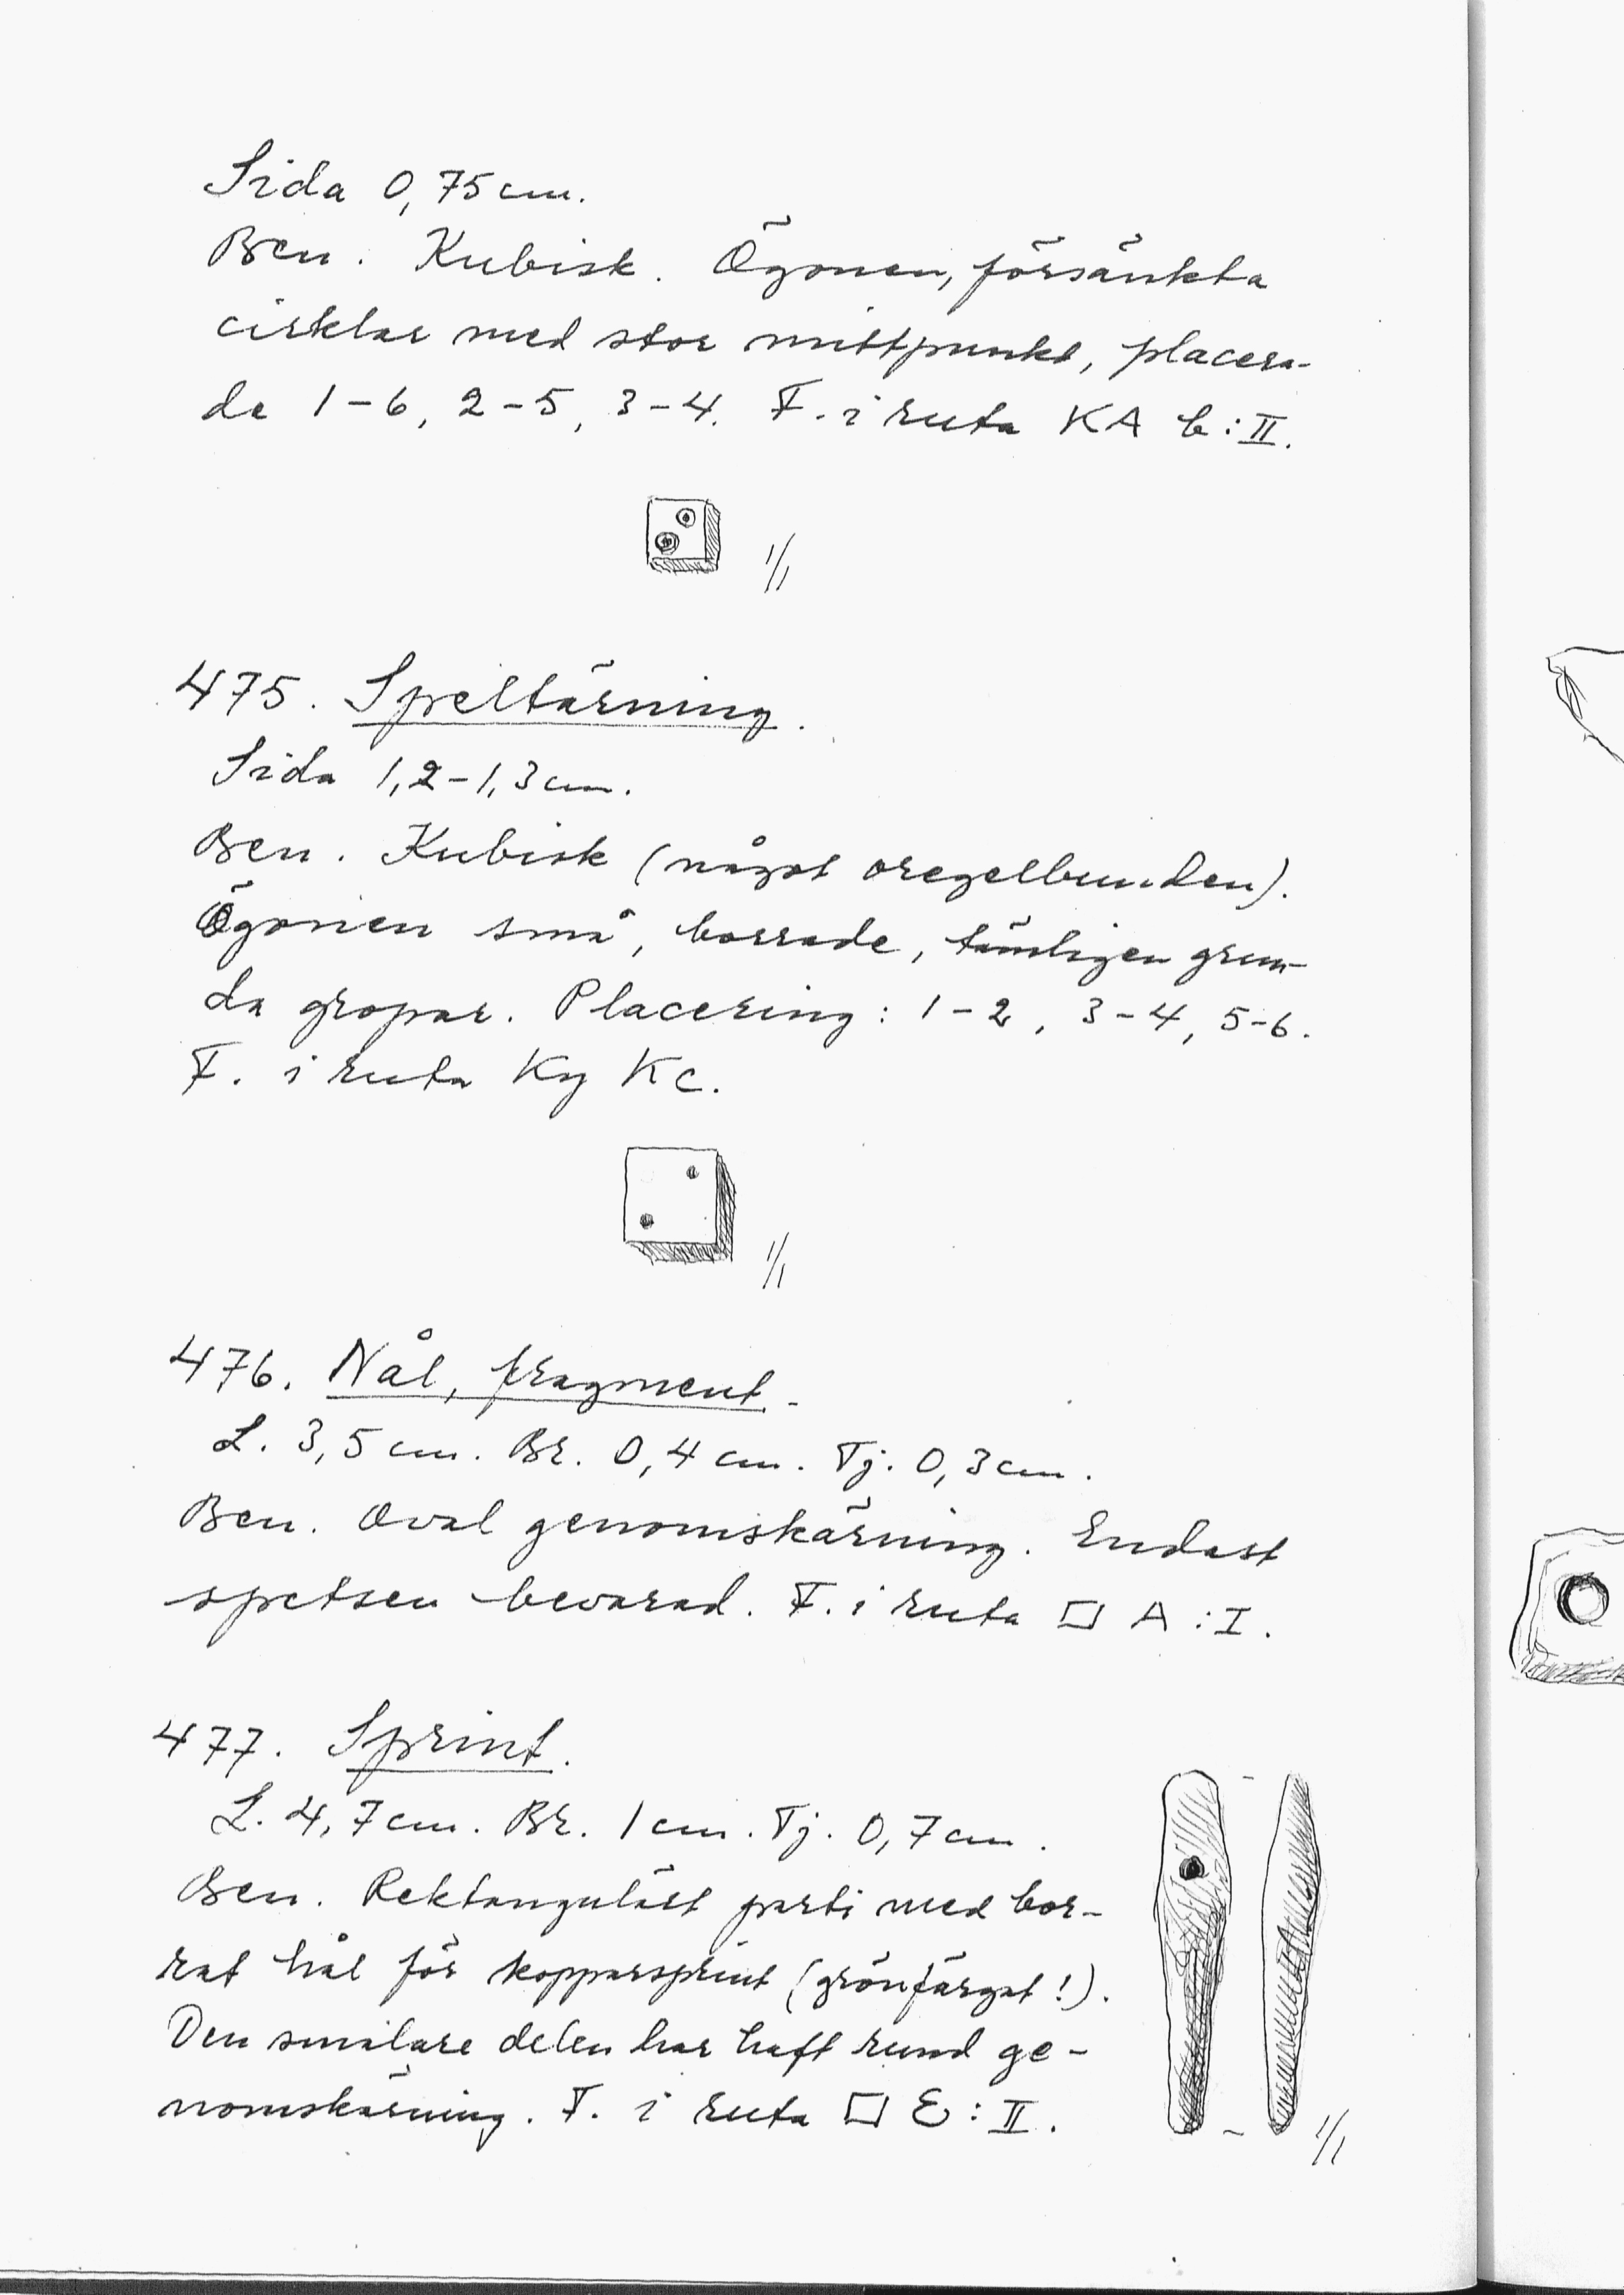 Sida 0,75 cm.
Ben. Kubisk. Ögonen, försänkta
cirklar med stor mittpunkt, placera-
de 1-6, 2-5, 3-4. F. i ruta KA b:II.
1/1
475. Speltärning.
Sida 1,2-1,3 cm.
Ben. Kubisk (något oregelbunden).
Ögonen små, borrade, tämligen grun-
da gropar. Placering: 1-2, 3-4, 5-6.
F. i ruta Ky Kc.
1/1
476. Nål, fragment.
L. 3,5 cm. Br. 0,4 cm. Tj. 0,3 cm.
Ben. Oval genomskärning. Endast
spetsen bevarad. F. i ruta □ A:I.
477. Sprint.
L. 4,7 cm. Br. 1 cm. Tj. 0,7 cm.
Ben. Rektangulärt parti med bor-
rat hål för kopparsprint (grönfärgat!).
Den smalare delen har haft rund ge-
nomskärning. F. i ruta □ E:II.
1/1